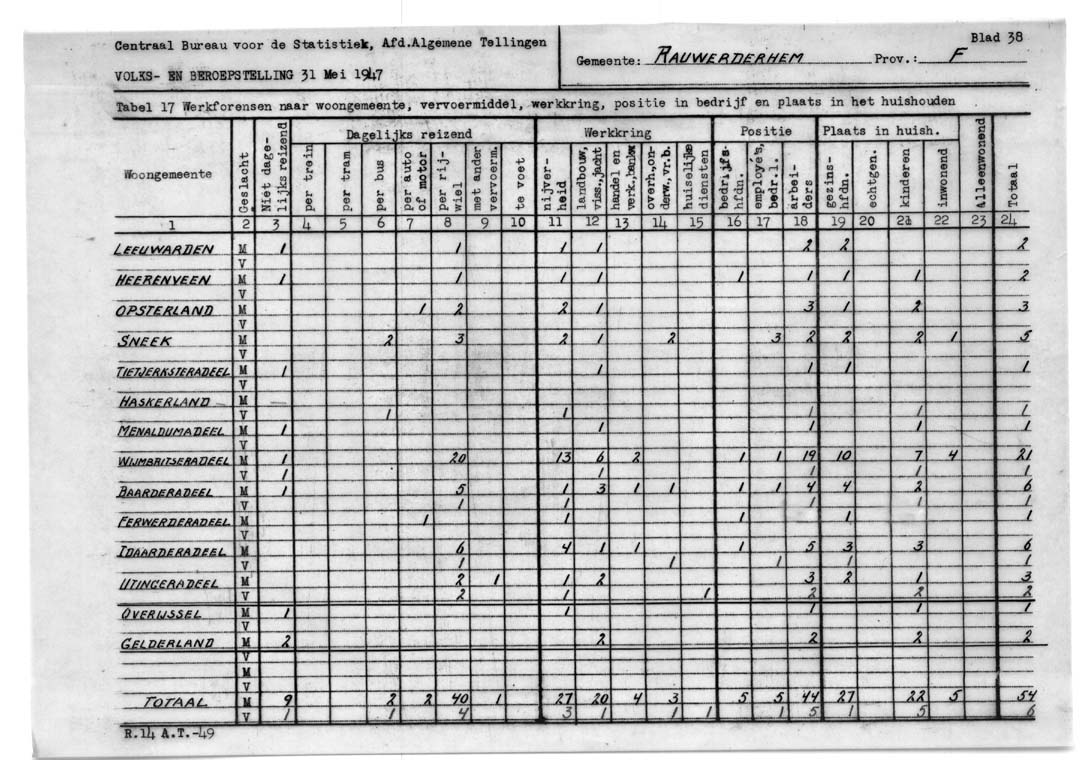 Centraal Bureau voor de Statistiek, Afd.Algemene Tellingen
VOLKS- EN BEROEPSTELLING 31 Mei 1947
Gemeente: RAUWERDERHEM Prov.: F
Blad 38
Tabel 17 Werkforensen naar woongemeente, vervoermiddel, werkkring, positie in bedrijf en plaats in het huishouden
Woongemeente Geslacht Niet dage-lijks reizend Dagelijks reizend Werkkring Positie Plaats in huish. Alleenwonend Totaal
per trein per tram per bus per auto of motor per rij-wiel met ander vervoerm. te voet nijver-heid landbouw, viss.,jacht handel en verk.,bankw overh.,on-derw.,vr.b. huiselijke diensten bedrijfs-hfdn. employé's, bedr.l. arbei-ders gezins-hfdn. echtgen. kinderen inwonend
1 2 3 4 5 6 7 8 9 10 11 12 13 14 15 16 17 18 19 20 21 22 23 24
LEEUWARDEN M 1 1 1 1 2 2 2
V
HEERENVEEN M 1 1 1 1 1 1 1 1 2
V
OPSTERLAND M 1 2 2 1 3 1 2 3
V
SNEEK M 2 3 2 1 2 3 2 2 2 1 5
V
TIETJERKSTERADEEL M 1 1 1 1 1
V
HASKERLAND M
V 1 1 1 1 1
MENALDUMADEEL M 1 1 1 1 1
V
WIJMBRITSERADEEL M 1 20 13 6 2 1 1 19 10 7 4 21
V 1 1 1 1 1
BAARDERADEEL M 1 5 1 3 1 1 1 1 4 4 2 6
V 1 1 1 1 1
FERWERDERADEEL M 1 1 1 1 1
V
IDAARDERADEEL M 6 4 1 1 1 5 3 3 6
V 1 1 1 1 1
UTINGERADEEL M 2 1 1 2 3 2 1 3
V 2 1 1 2 2 2
OVERIJSSEL M 1 1 1 1 1
V
GELDERLAND M 2 2 2 2 2
V
M
V
TOTAAL M 9 2 2 40 1 27 20 4 3 5 5 44 27 22 5 54
V 1 1 4 3 1 1 1 1 5 1 5 6
R.14 A.T.-49